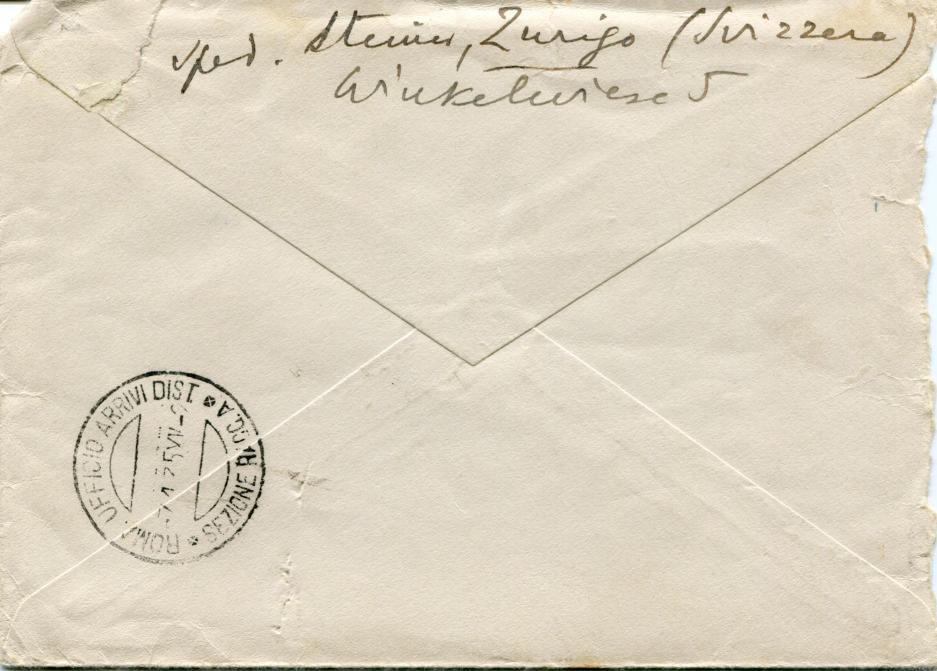 sped. Steiner, Zurigo (Svizzera)
Winkelwiese 5
ROMA UFFICIO ARRIVI DIST.
SEZIONE RACC. A